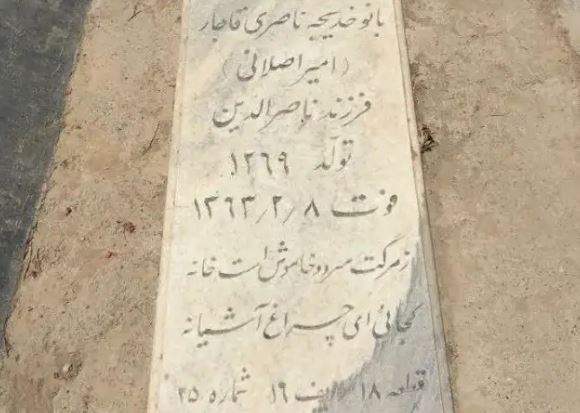 بانو خدیجه ناصری قاجار
(امیراصلانی)
فرزند ناصرالدین
تولد ۱۲۶۹
فوت ۱۳۶۳/۲/۸
ز مرگت سرد و خاموش است خانه
کجائی ای چراغ آشیانه
قطعه ۱۸ ردیف ۱۶ شماره ۲۵